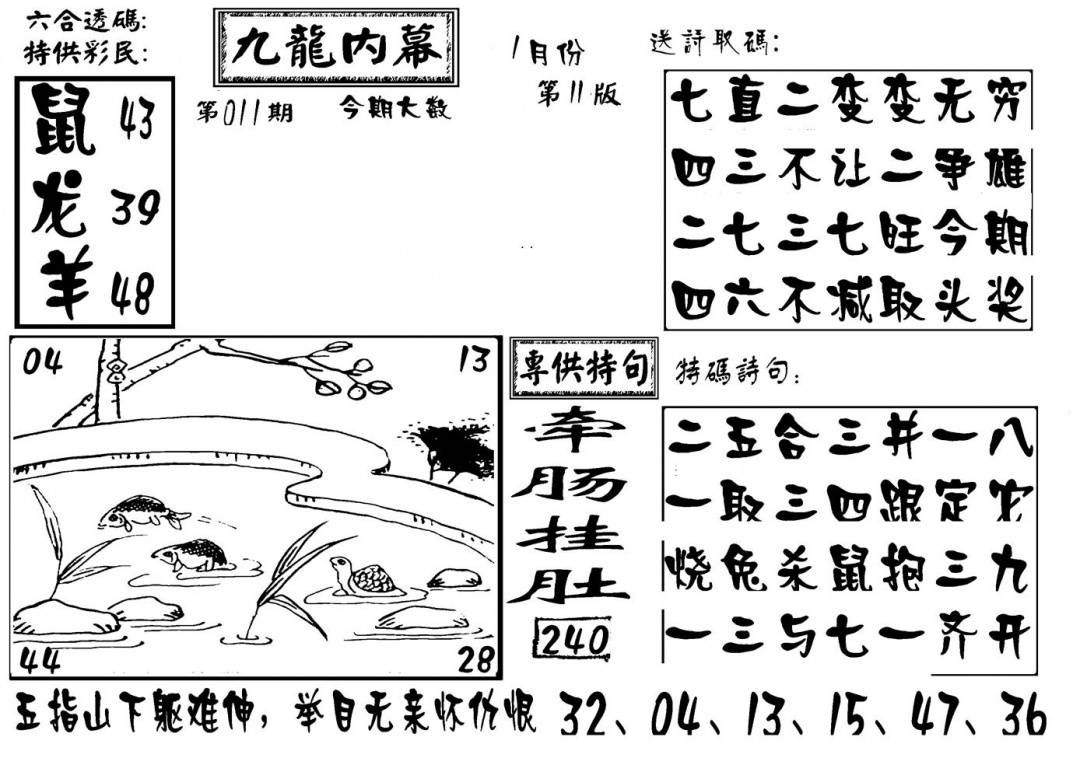 六合透碼:
特供彩民:
鼠 43
龙 39
羊 48
九龍内幕
第011期 今期大数
1月份
第11版
送詩取碼:
七直二变变无穷
四三不让二争雄
二七三七旺今期
四六不减取头奖
04 13
44 28
専供特句
牵
肠
挂
肚
240
特碼詩句:
二五合三并一八
一取三四跟定
烧兔杀鼠抱三九
一三与七一齐开
五指山下躯难伸,举目无亲怀仇恨 32、04、13、15、47、36